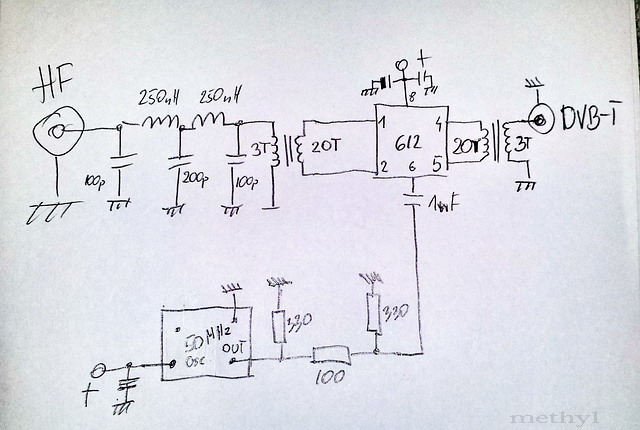 HF
250nH 250nH
+
8
DVB-T
100p
200p
100p
3T
20T
1
4
612
2 6 5
20T
3T
330
330
50MHz
OSC OUT
100
+
methyl